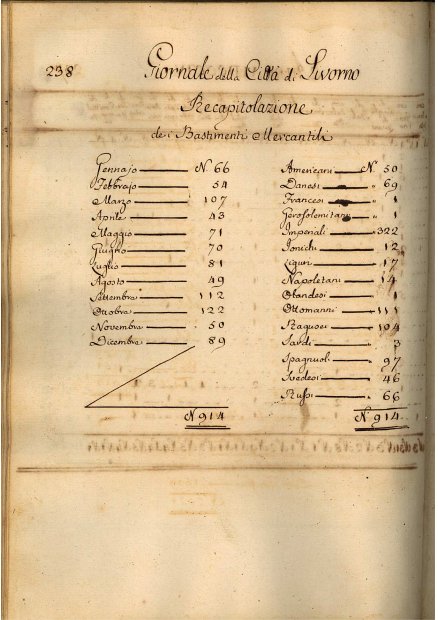 238
Giornale della Città di Livorno
Recapitolazione
de i Bastimenti Mercantili
Gennajo N. 66
Febbrajo 54
Marzo 107
Aprile 43
Maggio 71
Giugno 70
Luglio 81
Agosto 49
Settembre 112
Ottobre 122
Novembre 50
Dicembre 89
N. 914
Americani N. 50
Danesi " 69
Francesi " 1
Gerosolemitani " 1
Imperiali " 322
Jonichi " 12
Liguri " 17
Napoletani " 14
Olandesi " 1
Ottomanni " 111
Ragusei " 104
Sardi " 3
Spagnuoli " 97
Svedesi " 46
Russi " 66
N. 914